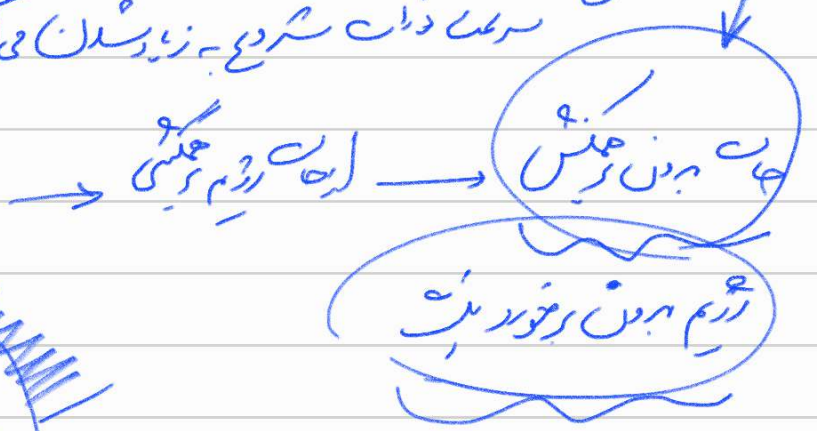 سرعت ذرات شروع به زیاد شدن می
حالت بدون برهمکنش → ایجاد رژیم برهمکنشی →
رژیم بدون برخورد نیست